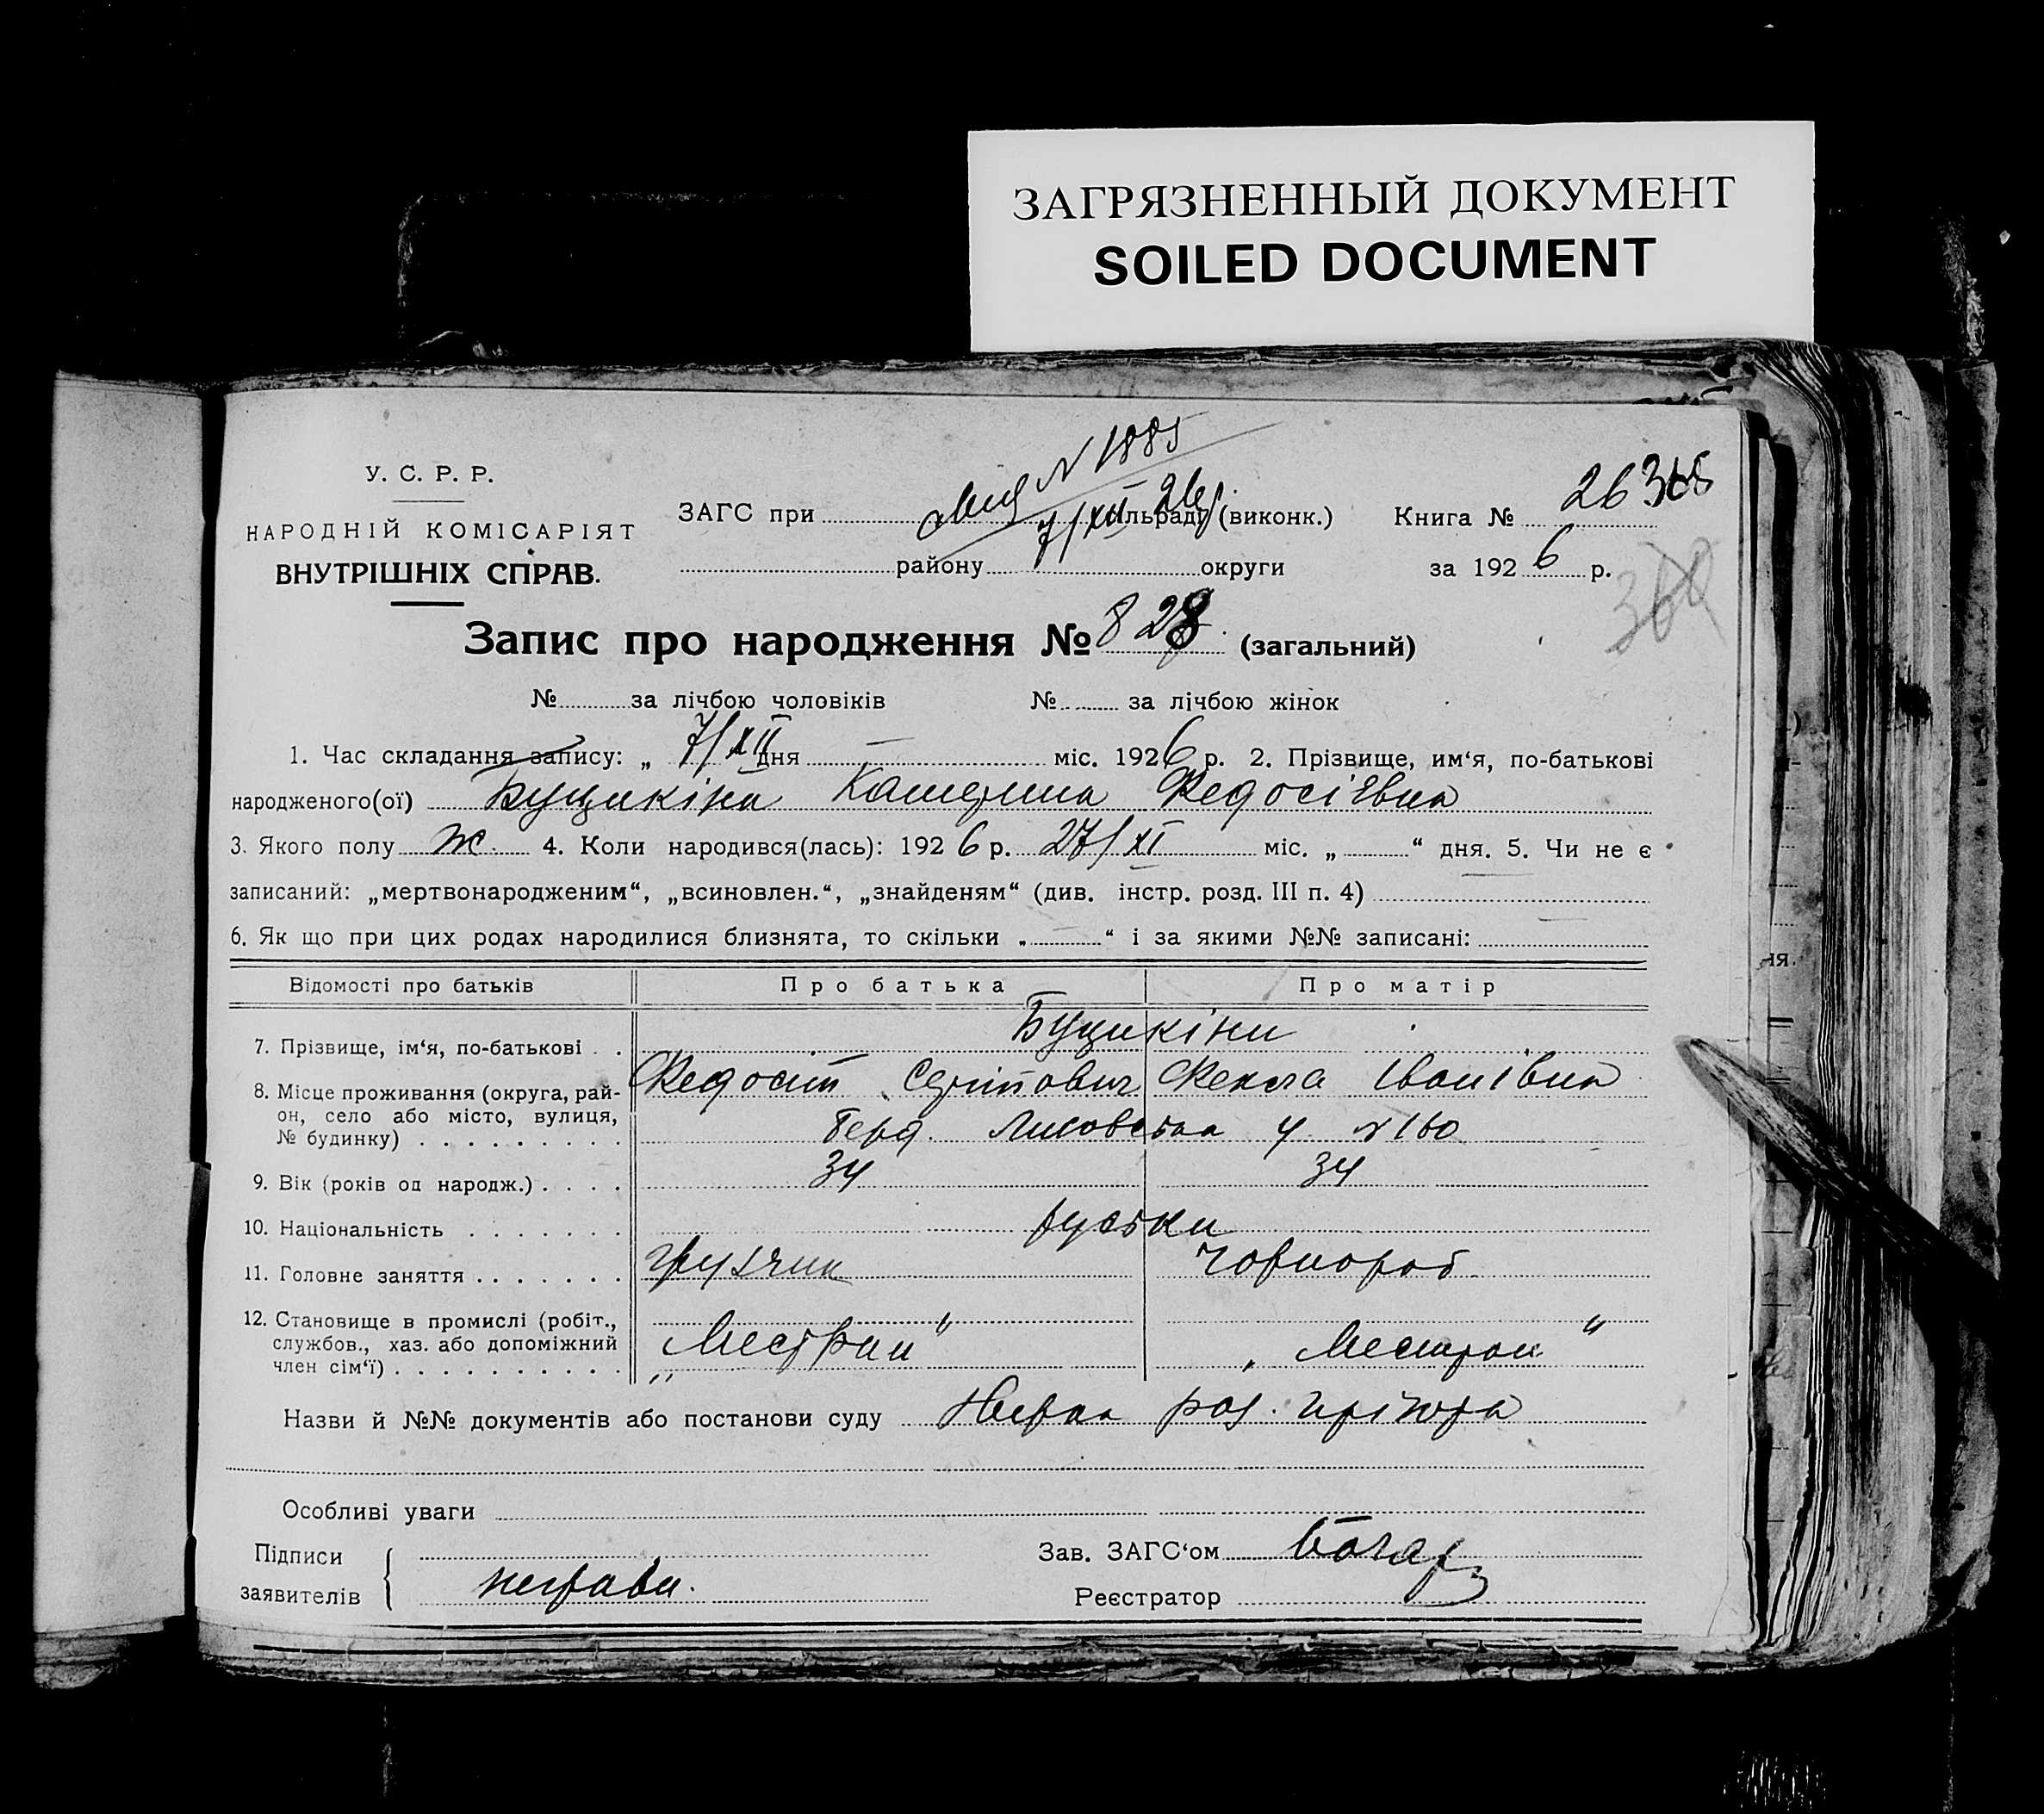 ЗАГРЯЗНЕННЫЙ ДОКУМЕНТ
SOILED DOCUMENT
У. С. Р. Р.
НАРОДНІЙ КОМІСАРІЯТ
ВНУТРІШНІХ СПРАВ.
№ 1885
7/XII 26р.
ЗАГС при сільради (виконк.) Книга № 26
району округи за 1926 р.
Запис про народження № 828 (загальний)
№ за лічбою чоловіків № за лічбою жінок
1. Час складання запису: „ 7/XII дня — міс. 1926 р. 2. Прізвище, им‘я, по-батькові
народженого(ої) Буцикіна Катерина Федосіївна
3. Якого полу ж. 4. Коли народився(лась): 1926 р. 27/XI міс. „ “ дня. 5. Чи не є
записаний: „мертвонародженим“, „всиновлен.“, „знайденям“ (див. інстр. розд. III п. 4)
6. Як що при цих родах народилися близнята, то скільки „ “ і за якими №№ записані:
Відомості про батьків Про батька Про матір
7. Прізвище, ім‘я, по-батькові . . Буцикіни
Федосій Фекла Іванівна
8. Місце проживання (округа, рай-
он, село або місто, вулиця,
№ будинку) . . . . . . . . . Берд. Лисовська у №160
9. Вік (років од народж.) . . . . 34 34
10. Національність . . . . . . . руськи
11. Головне заняття . . . . . . . грузчик чорнороб
12. Становище в промислі (робіт.,
службов., хаз. або допоміжний
член сім‘ї) . . . . . . . . . . „Местран“ „Местран“
Назви й №№ документів або постанови суду
Особливі уваги
Підписи
заявителів неграмн.
Зав. ЗАГС‘ом
Реєстратор